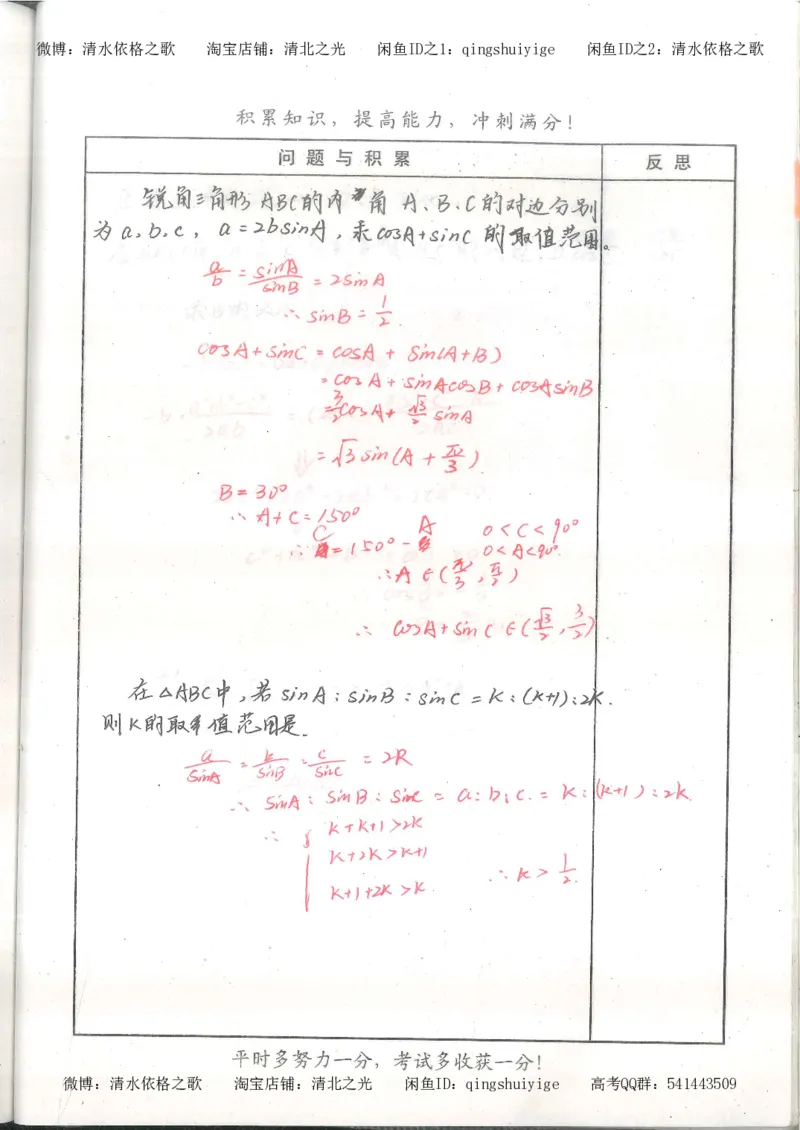 微博：清水依格之歌 淘宝店铺：清北之光 闲鱼ID之1：qingshuiyige 闲鱼ID之2：清水依格之歌
积累知识，提高能力，冲刺满分！
问题与积累 反思
锐角三角形ABC的内角A、B、C的对边分别
为a,b,c，a=2bsinA，求cosA+sinC的取值范围。
a/b = sinA/sinB = 2sinA
∴ sinB = 1/2.
cosA+sinC = cosA + sin(A+B)
= cosA + sinAcosB + cosAsinB
= 3/2 cosA + √3/2 sinA
= √3 sin(A + π/3)
B = 30°
∴ A+C = 150°
∴ C = 150° - A 0<C<90°
0<A<90°.
∴ A ∈ (π/3, π/2)
∴ cosA+sinC ∈ (√3/2, 3/2)
在△ABC中，若sinA：sinB：sinC = K：(K+1)：2K.
则K的取值范围是.
a/sinA = b/sinB = c/sinC = 2R
∴ sinA：sinB：sinC = a：b：c. = K：(K+1)：2K.
∴ { K+K+1>2K
K+2K>K+1
K+1+2K>K. ∴ K > 1/2.
平时多努力一分，考试多收获一分！
微博：清水依格之歌 淘宝店铺：清北之光 闲鱼ID：qingshuiyige 高考QQ群：541443509